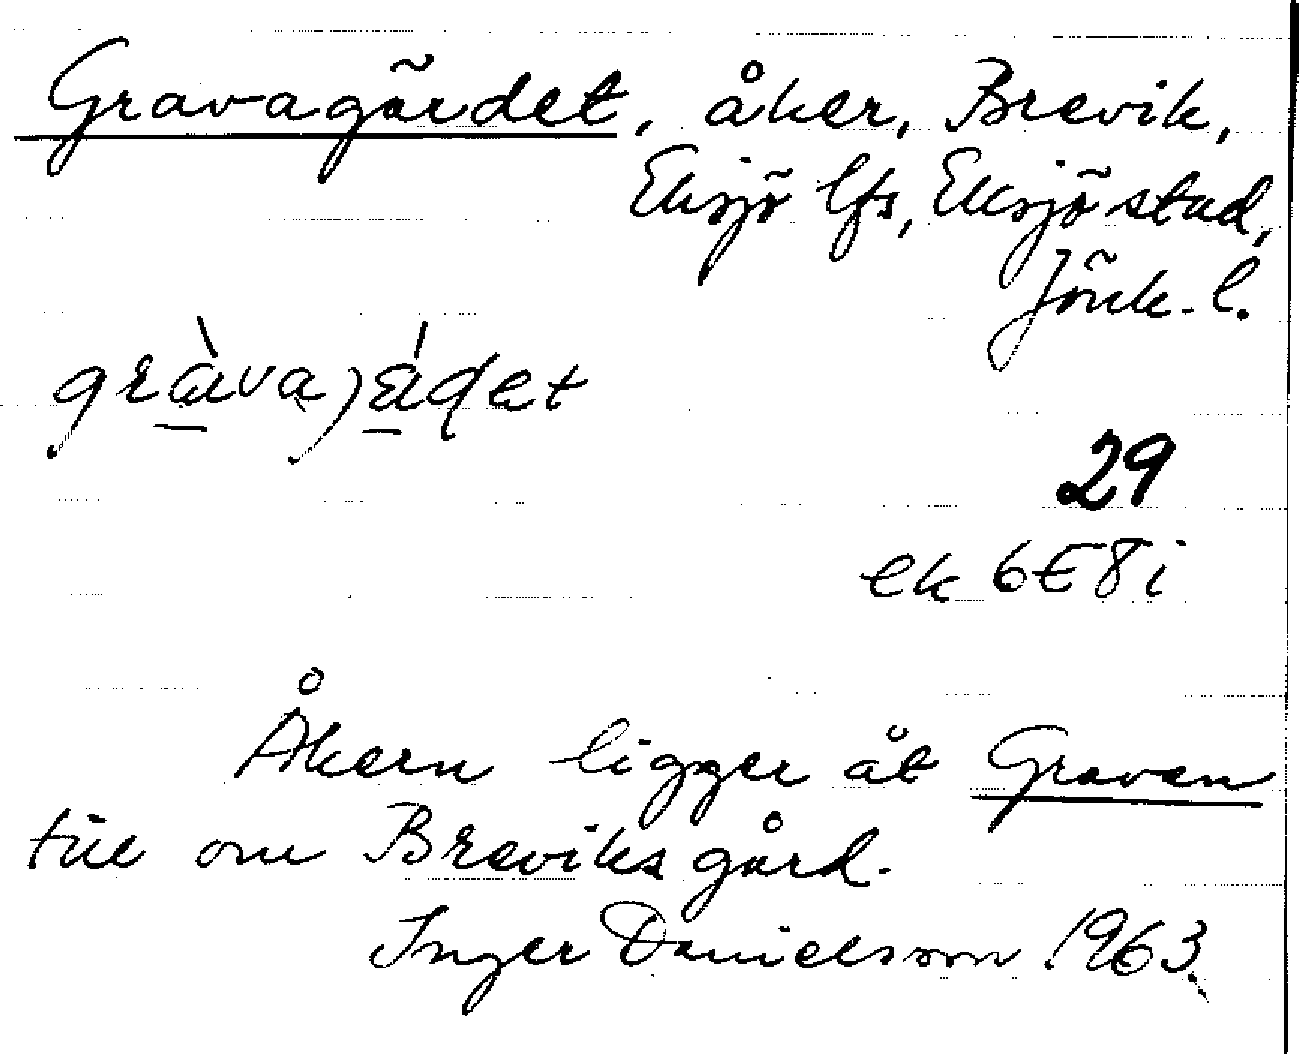 Gravagärdet, åker, Brevik,
Eksjö lfs, Eksjö stad,
Jönk. l.
29
ek 6E8i
Åkern ligger åt Graven
till om Breviks gård.
Inger Danielsson 1963.